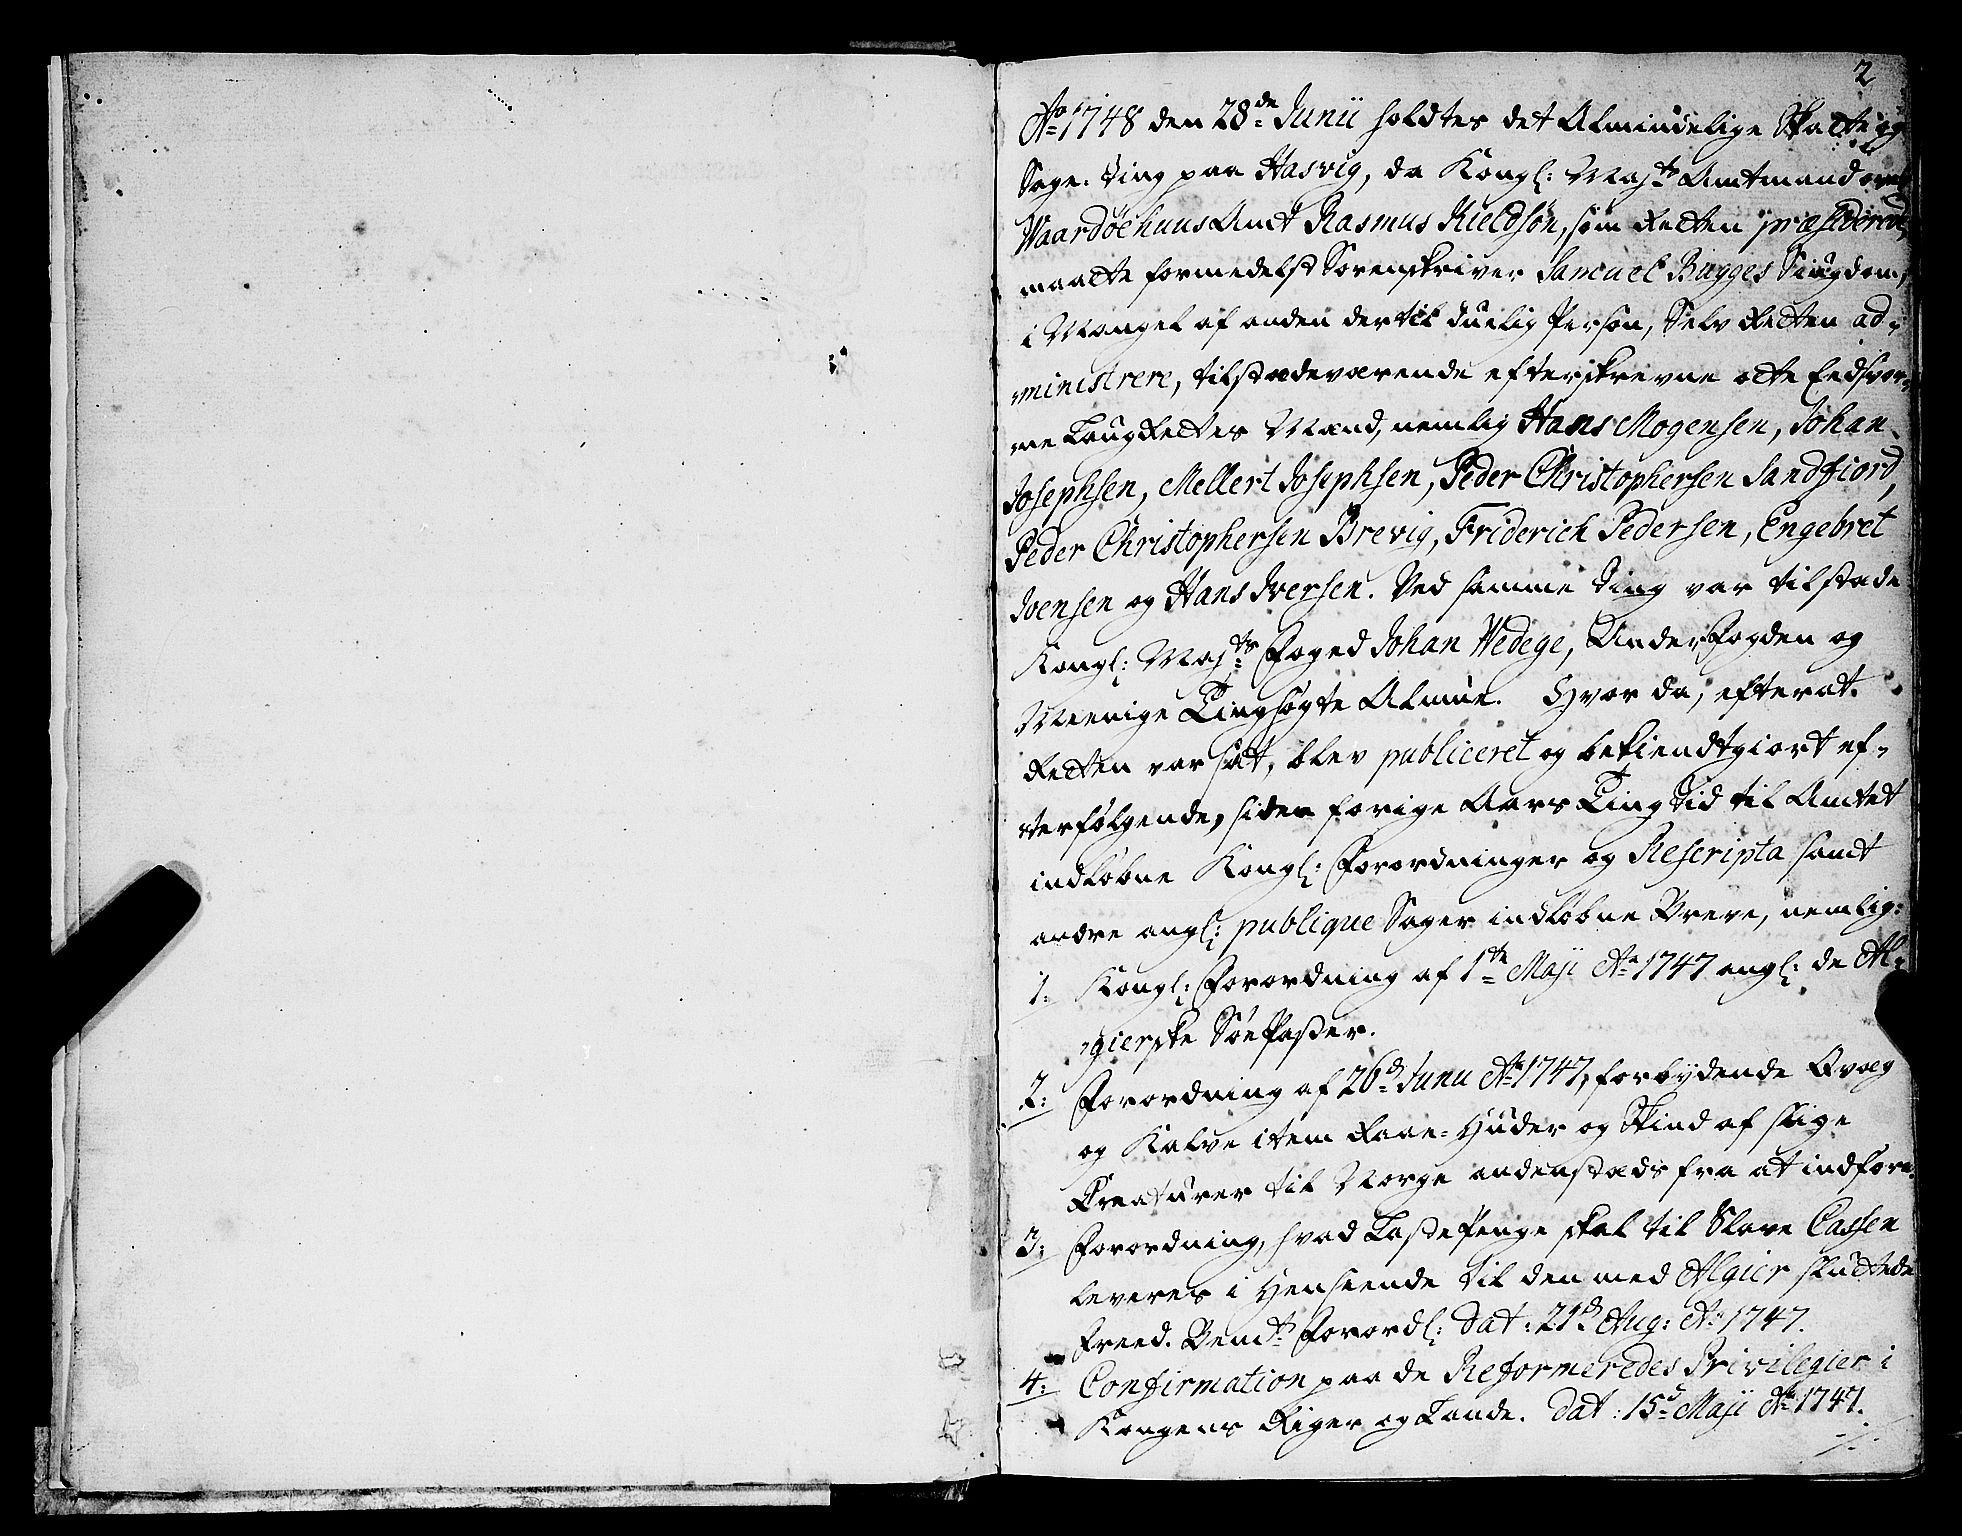 2
Ao 1748 den 28de Junii holdtes det Almindelige Skatte og
Sage-Ting paa Hasvig, da Kongl: Majts Amtmand over
Waardøehuus Amt Rasmus Kieldsøn, som Retten præsiderede,
maatte formedelst Sorenskriver Samuel Bugges Siugdom,
i Mangel af anden dertil duelig Persøn, Selv Retten ad-
ministrere, tilstædeværende efterskrevne otte Eedsvor-
ne LaugRettes Mænd, nemlig Hans Mogensen, Johan
Josephsen, Mellert Josephsen, Peder Christophersen Sandfiord,
Peder Christophersen Brevig, Friderich Pedersen, Engebret
Joensen og Hans Iversen. Ved samme Ting var tilstæde
Kongl: Majts Foged Johan Wedege, UnderFogden og
Meenige Tingsøgte Almue. Hvor da, efterat
Retten var sat, blev publiceret og bekiendtgiort ef-
terfølgende, siden forige Aars Ting Tid til Amtet
indløbne Kongl: Forordninger og Rescripta samt
andre angl: publique Sager indløbne Breve, nemlig:
1: Kongl: Forordning af 1te Maji Ao 1747 angl: de Al-
gierske SøePasser.
2: Forordning af 26d Junii Ao 1747, forbydende Qvæg
og Kalve item Raae-Huder og Skind af slige
Creaturer til Norge andenstæds fra at indføre.
3: Forordning, hvad LastePenge skal til Slave Cassen
leveres i Henseende til den med Algier sluttede
Freed. Bemte Forordl: Dat: 21d Aug: Ao 1747.
4: Confirmation paa de Reformeredes Privilegier i
Kongens Riger og Lande. Dat: 15d Maji Ao 1747.